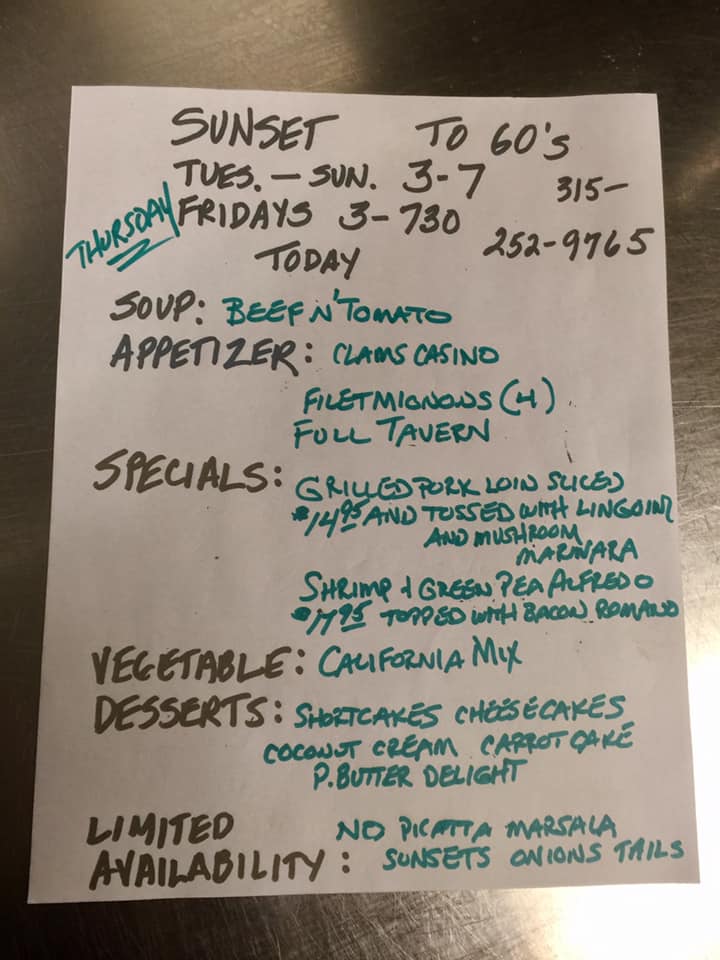 SUNSET TO 60'S
TUES. - SUN. 3-7 315-
THURSDAY FRIDAYS 3-730
252-9765
TODAY
SOUP: BEEF N' TOMATO
APPETIZER: CLAMS CASINO
FILET MIGNONS (4)
FULL TAVERN
SPECIALS: GRILLED PORK LOIN SLICED
$14.95 AND TOSSED WITH LINGOINI
AND MUSHROOM
MARINARA
SHRIMP & GREEN PEA ALFREDO
$17.95 TOPPED WITH BACON ROMANO
VEGETABLE: CALIFORNIA MIX
DESSERTS: SHORTCAKES CHEESECAKES
COCONUT CREAM CARROT CAKE
P. BUTTER DELIGHT
LIMITED NO PICATTA MARSALA
AVAILABILITY: SUNSETS ONIONS TAILS